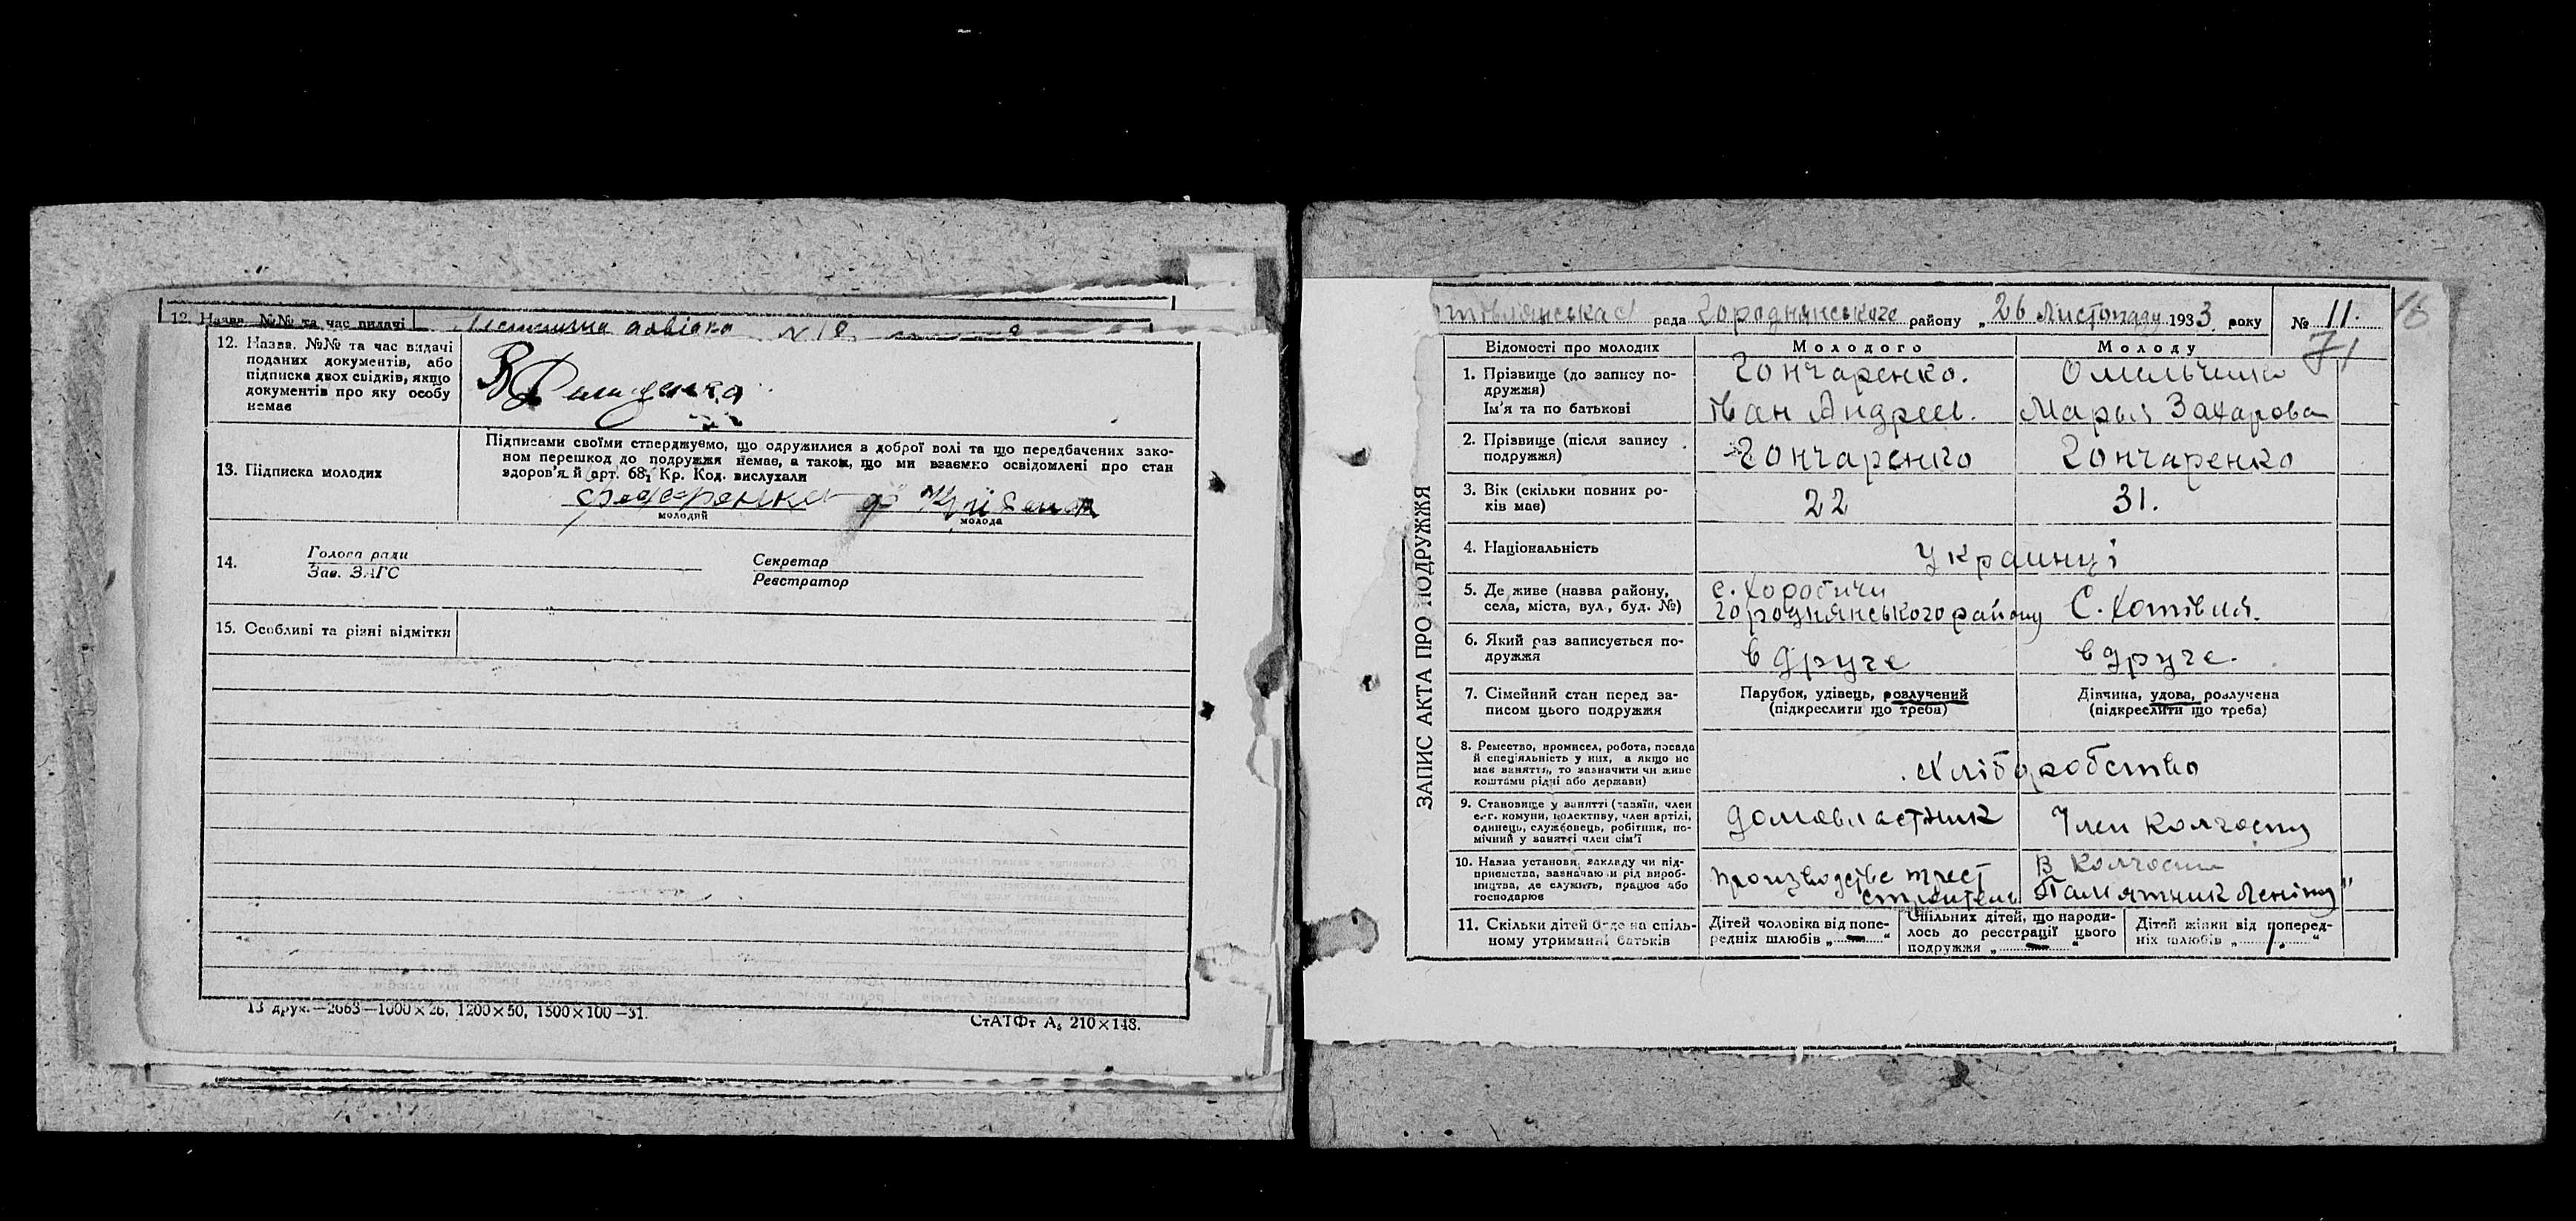 12. Назва, №№ та час видачі
12. Назва, №№ та час видачі
поданих документів, або
підписка двох свідків, якщо
документів про яку особу
немає
13. Підписка молодих
Підписами своїми стверджуємо, що одружилися з доброї волі та що передбачених зако-
ном перешкод до подружжя немає, а також, що ми взаємно освідомлені про стан
здоров'я й арт. 68₁ Кр. Код. вислухали
молодий
молода
14.
Голова ради
Зав. ЗАГС
Секретар
Реєстратор
15. Особливі та різні відмітки
13 друк.—2663—1000×26, 1200×50, 1500×100—31.
СтАТФт А₅ 210×148.
ЗАПИС АКТА ПРО ПОДРУЖЖЯ
рада Городнянського району „26 Листопаду 1933 року
№ 11.
16
71
Відомості про молодих
Молодого
Молоду
1. Прізвище (до запису по-
дружжя)
Ім'я та по батькові
Гончаренко.
Іван Андреев.
Омельченко
Марья Захарова
2. Прізвище (після запису
подружжя)
Гончаренко
Гончаренко
3. Вік (скільки повних ро-
ків має)
22
31.
4. Національність
Украинці
5. Де живе (назва району,
села, міста, вул., буд. №)
с. Хоробичи
Городнянського району
С. Хотівля.
6. Який раз записується по-
дружжя
вдруге
вдруге.
7. Сімейний стан перед за-
писом цього подружжя
Парубок, удівець, розлучений
(підкреслити що треба)
Дівчина, удова, розлучена
(підкреслити що треба)
8. Ремество, промисел, робота, посада
й спеціяльність у них, а якщо не
має заняття, то зазначити чи живе
коштами рідні або держави)
Хліборобство
9. Становище у занятті (хазяїн, член
с.-г. комуни, колективу, член артілі,
одинець, службовець, робітник, по-
мічний у занятті член сім'ї
домовластник
Член колгоспу
10. Назва установи, закладу чи під-
приємства, зазначаючи рід вироб-
ництва, де служить, працює або
господарює
производстве трест
строитель
В колгоспи
"Памятник Леніну"
11. Скільки дітей буде на спіль-
ному утриманні батьків
Дітей чоловіка від попе-
редніх шлюбів „ — “
Спільних дітей, що народи-
лось до реєстрації цього
подружжя „ — “
Дітей жінки від поперед-
ніх шлюбів „ 1. “